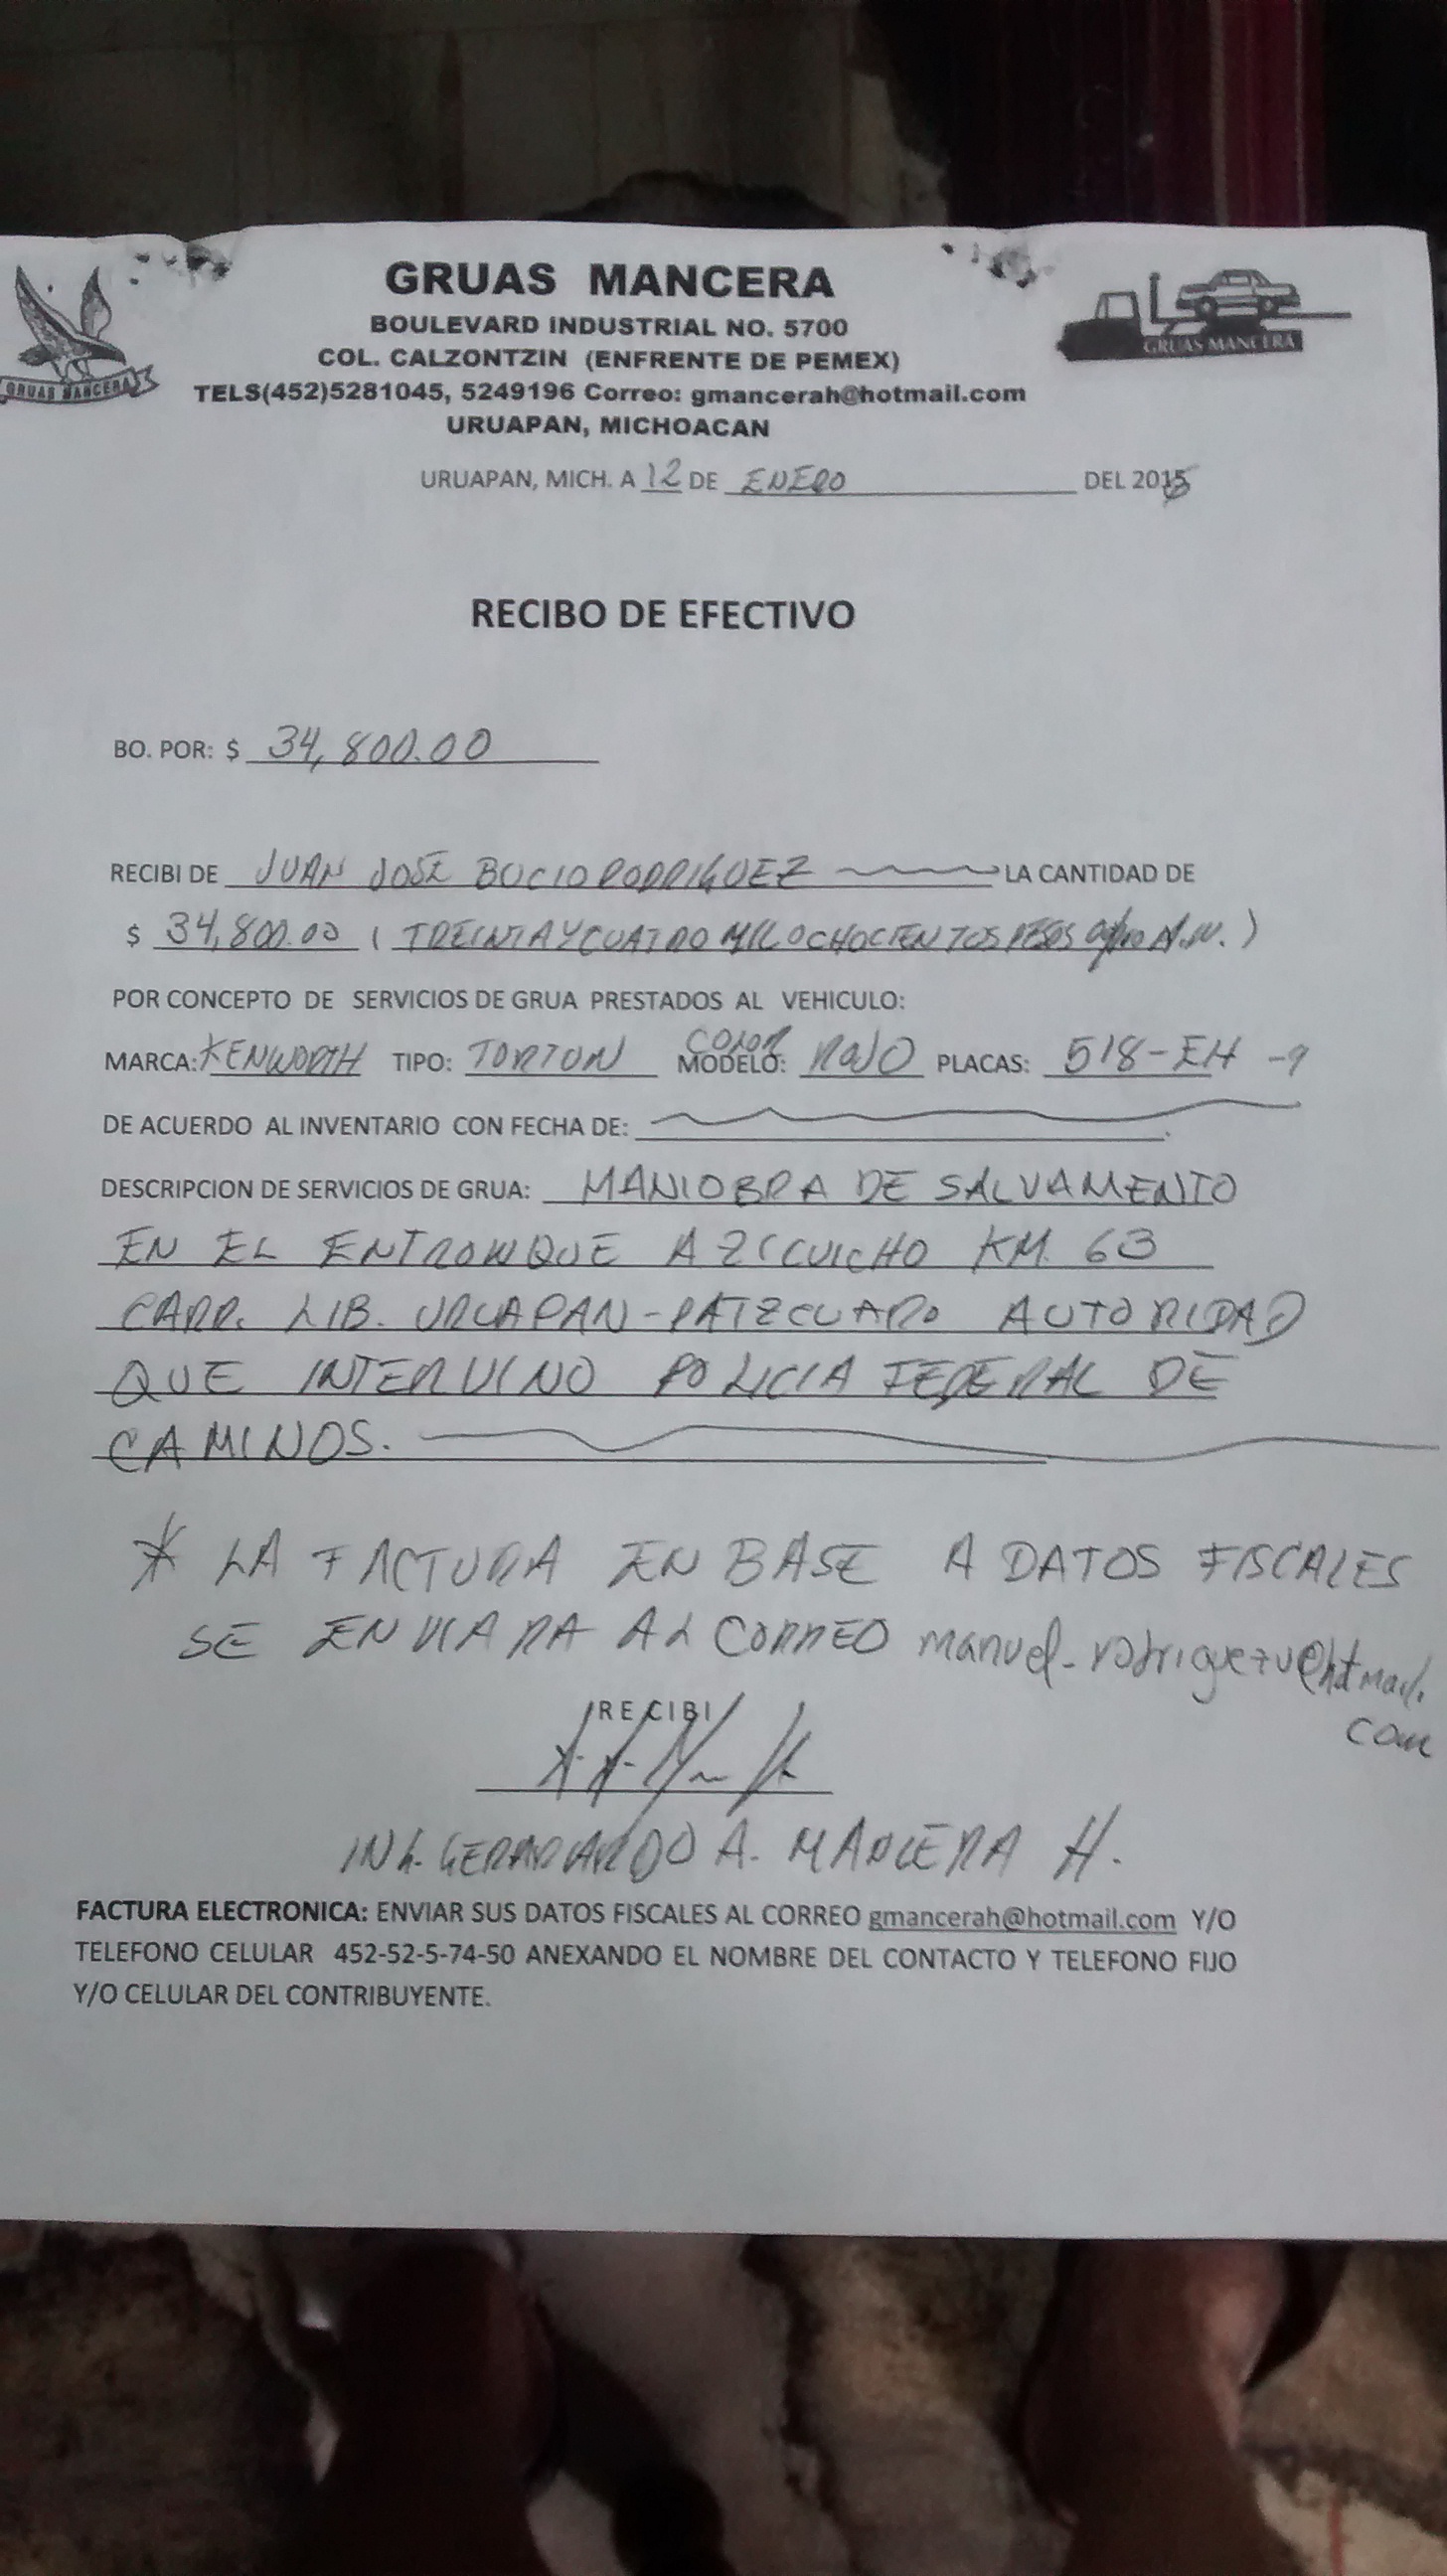 GRUAS MANCERA
BOULEVARD INDUSTRIAL NO. 5700
COL. CALZONTZIN (ENFRENTE DE PEMEX)
TELS(452)5281045, 5249196 Correo: gmancerah@hotmail.com
URUAPAN, MICHOACAN
GRUAS MANCERA
GRUAS MANCERA
URUAPAN, MICH. A 12 DE ENERO DEL 201
RECIBO DE EFECTIVO
BO. POR: $ 34,800.00
RECIBI DE JUAN JOSE BUCIO RODRIGUEZ LA CANTIDAD DE
$ 34,800.00 ( TREINTA Y CUATRO MIL OCHOCIENTOS PESOS M.N. )
POR CONCEPTO DE SERVICIOS DE GRUA PRESTADOS AL VEHICULO:
COLOR
MARCA: KENWORTH TIPO: TORTON MODELO: ROJO PLACAS: 518-EH-9
DE ACUERDO AL INVENTARIO CON FECHA DE:
DESCRIPCION DE SERVICIOS DE GRUA: MANIOBRA DE SALVAMENTO
EN EL ENTRONQUE A ZICUICHO KM. 63
CARR. LIB. URUAPAN-PATZCUARO AUTORIDAD
QUE INTERVINO POLICIA FEDERAL DE
CAMINOS.
* LA FACTURA EN BASE A DATOS FISCALES
SE ENVIARA AL CORREO manuel_rodriguezv@hotmail.
com
RECIBI
ING. GERARDO A. MANCERA H.
FACTURA ELECTRONICA: ENVIAR SUS DATOS FISCALES AL CORREO gmancerah@hotmail.com Y/O
TELEFONO CELULAR 452-52-5-74-50 ANEXANDO EL NOMBRE DEL CONTACTO Y TELEFONO FIJO
Y/O CELULAR DEL CONTRIBUYENTE.